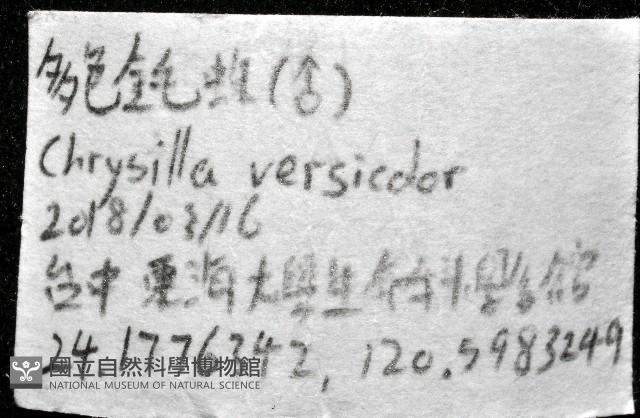 多色金毛蛛(含)
Chrysilla versicolor
2018/03/16
台中東海大學生命科學館
24.1776242, 120.5983249
國立自然科學博物館
NATIONAL MUSEUM OF NATURAL SCIENCE